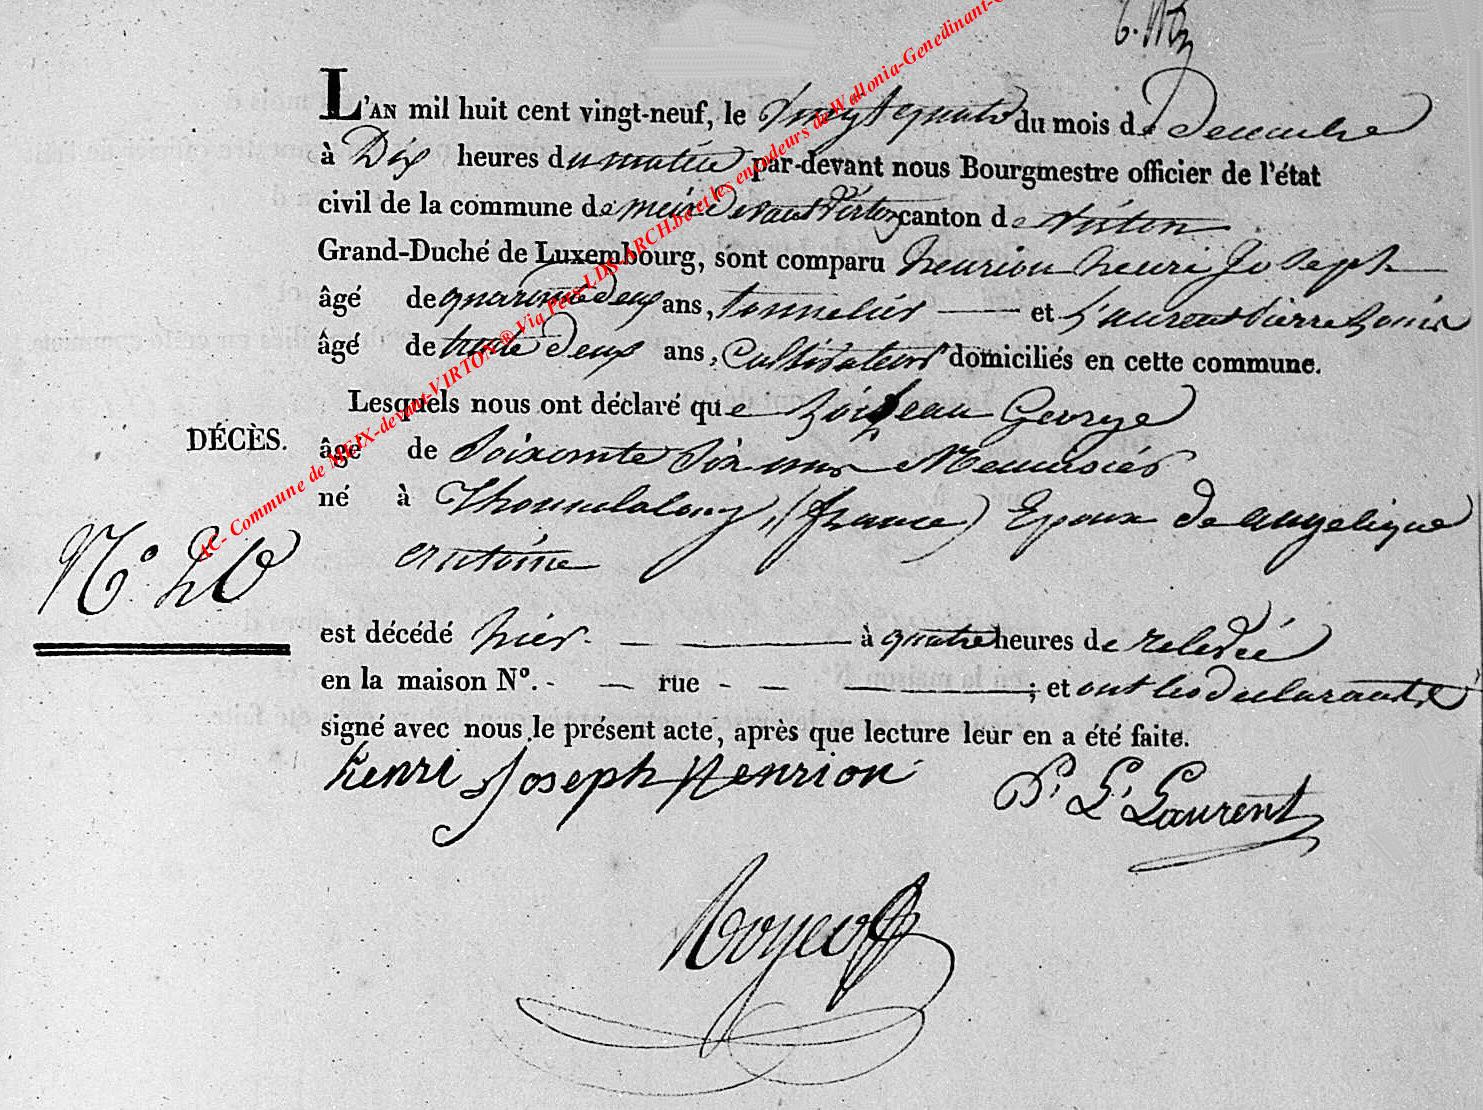 L'AN mil huit cent vingt-neuf, le vingt quatre du mois de Decembre
à Dix heures du matin par-devant nous Bourgmestre officier de l'état
civil de la commune de meix devant Virton canton de virton
Grand-Duché de Luxembourg, sont comparu henrion henri Joseph
âgé de quarante deux ans, tonnelier et Laurent Pierre Louis
âgé de trente deux ans, Cultivateur domiciliés en cette commune.
Lesquels nous ont déclaré que George
DÉCÈS.
âgé de Soixante Six ans Menuisier
né à Thonnelalong (france) Epoux de angelique
antoine
N° 20
est décédé hier à quatre heures de relevée
en la maison N°. - rue - ; et ont les declarants
signé avec nous le présent acte, après que lecture leur en a été faite.
henri Joseph henrion P. L. Laurent
AC- Commune de MEIX-devant-VIRTON® Via Pers-LDS-ARCH.be et les encodeurs de Wallonia-Genedinant-